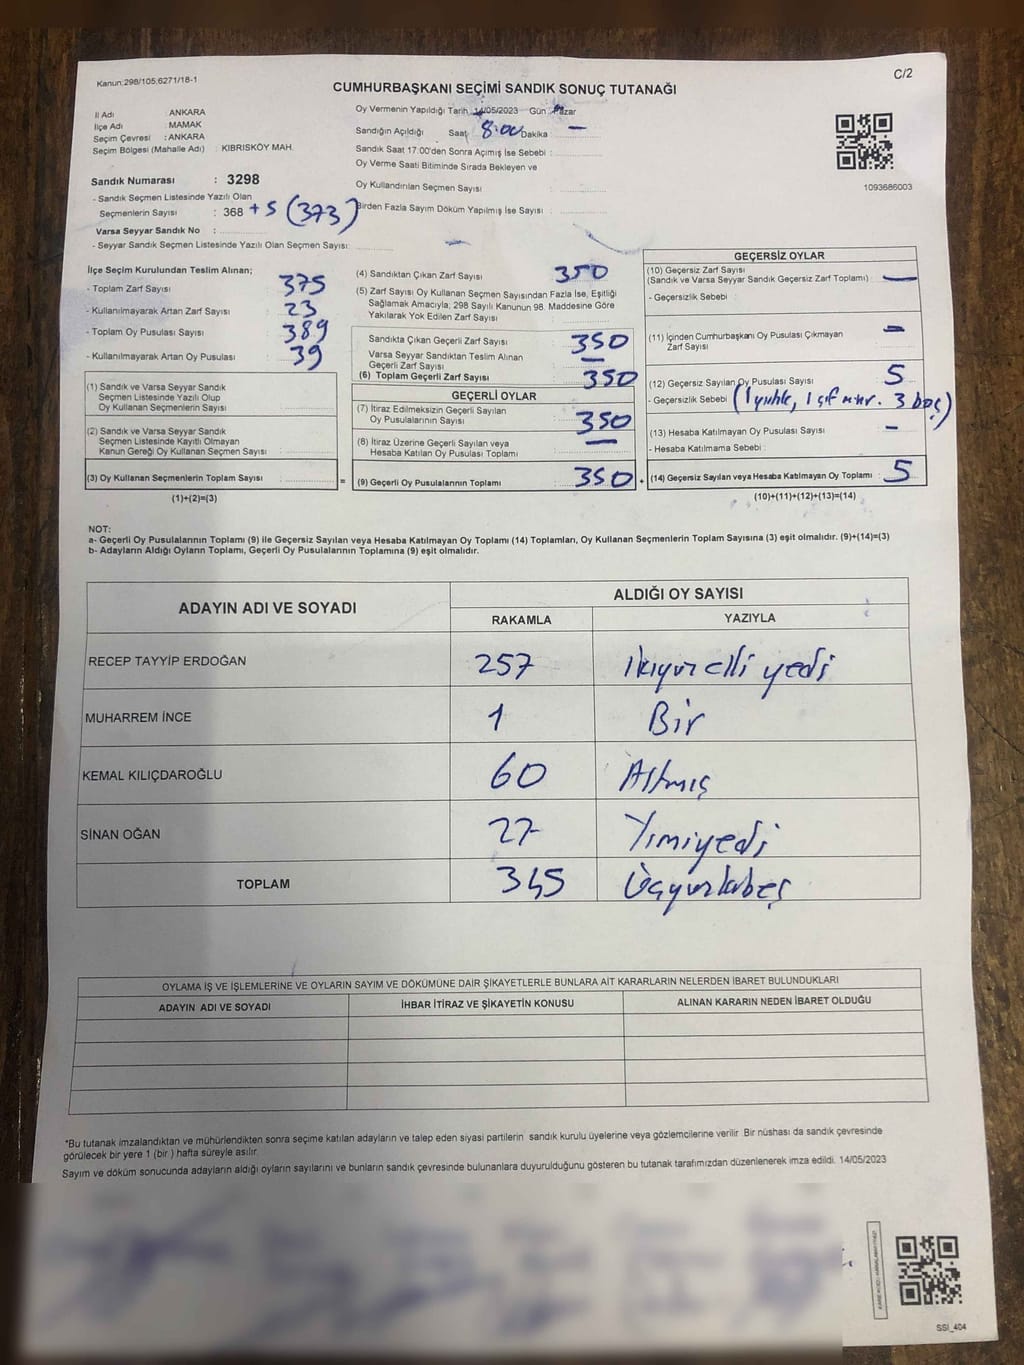 Kanun:298/105,6271/18-1
C/2
CUMHURBAŞKANI SEÇİMİ SANDIK SONUÇ TUTANAĞI
İl Adı : ANKARA
İlçe Adı : MAMAK
Seçim Çevresi : ANKARA
Seçim Bölgesi (Mahalle Adı) : KIBRISKÖY MAH.
Oy Vermenin Yapıldığı Tarih 14/05/2023 Gün Pazar
Sandığın Açıldığı Saat 8:00 Dakika : —
Sandık Saat 17:00'den Sonra Açımış İse Sebebi :
Oy Verme Saati Bitiminde Sırada Bekleyen ve
Oy Kullandırılan Seçmen Sayısı :
Birden Fazla Sayım Döküm Yapılmış İse Sayısı :
1093686003
Sandık Numarası : 3298
- Sandık Seçmen Listesinde Yazılı Olan
Seçmenlerin Sayısı : 368 + 5 (373)
Varsa Seyyar Sandık No :
- Seyyar Sandık Seçmen Listesinde Yazılı Olan Seçmen Sayısı: —
İlçe Seçim Kurulundan Teslim Alınan;
- Toplam Zarf Sayısı : 375
- Kullanılmayarak Artan Zarf Sayısı : 23
- Toplam Oy Pusulası Sayısı : 389
- Kullanılmayarak Artan Oy Pusulası : 39
(1) Sandık ve Varsa Seyyar Sandık
Seçmen Listesinde Yazılı Olup
Oy Kullanan Seçmenlerin Sayısı :
(2) Sandık ve Varsa Seyyar Sandık
Seçmen Listesinde Kayıtlı Olmayan
Kanun Gereği Oy Kullanan Seçmen Sayısı :
(3) Oy Kullanan Seçmenlerin Toplam Sayısı : =
(1)+(2)=(3)
(4) Sandıktan Çıkan Zarf Sayısı : 350
(5) Zarf Sayısı Oy Kullanan Seçmen Sayısından Fazla İse, Eşitliği
Sağlamak Amacıyla, 298 Sayılı Kanunun 98. Maddesine Göre
Yakılarak Yok Edilen Zarf Sayısı :
Sandıkta Çıkan Geçerli Zarf Sayısı : 350
Varsa Seyyar Sandıktan Teslim Alınan
Geçerli Zarf Sayısı : —
(6) Toplam Geçerli Zarf Sayısı : 350
GEÇERLİ OYLAR
(7) İtiraz Edilmeksizin Geçerli Sayılan
Oy Pusulalarının Sayısı : 350
(8) İtiraz Üzerine Geçerli Sayılan veya
Hesaba Katılan Oy Pusulası Toplamı : —
(9) Geçerli Oy Pusulalarının Toplamı : 350 +
GEÇERSİZ OYLAR
(10) Geçersiz Zarf Sayısı
(Sandık ve Varsa Seyyar Sandık Geçersiz Zarf Toplamı) : —
- Geçersizlik Sebebi :
(11) İçinden Cumhurbaşkanı Oy Pusulası Çıkmayan
Zarf Sayısı : —
(12) Geçersiz Sayılan Oy Pusulası Sayısı : 5
- Geçersizlik Sebebi (1 yırtık, 1 çift mür. 3 boş)
(13) Hesaba Katılmayan Oy Pusulası Sayısı : —
- Hesaba Katılmama Sebebi :
(14) Geçersiz Sayılan veya Hesaba Katılmayan Oy Toplamı : 5
(10)+(11)+(12)+(13)=(14)
NOT:
a- Geçerli Oy Pusulalarının Toplamı (9) ile Geçersiz Sayılan veya Hesaba Katılmayan Oy Toplamı (14) Toplamları, Oy Kullanan Seçmenlerin Toplam Sayısına (3) eşit olmalıdır. (9)+(14)=(3)
b- Adayların Aldığı Oyların Toplamı, Geçerli Oy Pusulalarının Toplamına (9) eşit olmalıdır.
ADAYIN ADI VE SOYADI
ALDIĞI OY SAYISI
RAKAMLA YAZIYLA
RECEP TAYYİP ERDOĞAN 257 İkiyüzelli yedi
MUHARREM İNCE 1 Bir
KEMAL KILIÇDAROĞLU 60 Altmış
SİNAN OĞAN 27 Yirmiyedi
TOPLAM 345
OYLAMA İŞ VE İŞLEMLERİNE VE OYLARIN SAYIM VE DÖKÜMÜNE DAİR ŞİKAYETLERLE BUNLARA AİT KARARLARIN NELERDEN İBARET BULUNDUKLARI
ADAYIN ADI VE SOYADI İHBAR İTİRAZ VE ŞİKAYETİN KONUSU ALINAN KARARIN NEDEN İBARET OLDUĞU
*Bu tutanak imzalandıktan ve mühürlendikten sonra seçime katılan adayların ve talep eden siyasi partilerin sandık kurulu üyelerine veya gözlemcilerine verilir. Bir nüshası da sandık çevresinde
görülecek bir yere 1 (bir ) hafta süreyle asılır.
Sayım ve döküm sonucunda adayların aldığı oyların sayılarını ve bunların sandık çevresinde bulunanlara duyurulduğunu gösteren bu tutanak tarafımızdan düzenlenerek imza edildi. 14/05/2023
SSI_404